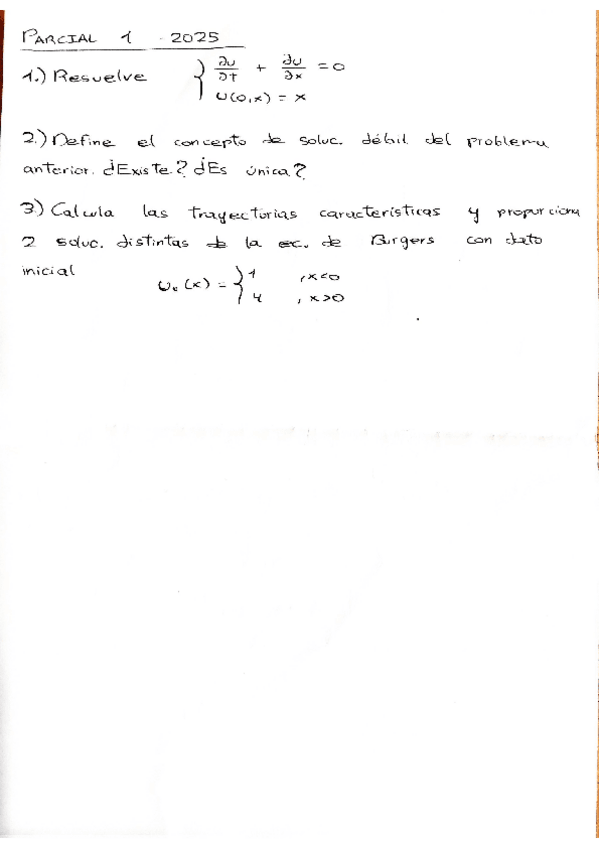 PARCIAL 1 2025
1.) Resuelve { ∂u/∂t + ∂u/∂x = 0
u(0,x) = x
2.) Define el concepto de soluc. débil del problema
anterior. ¿Existe? ¿Es única?
3.) Calcula las trayectorias características y proporciona
2 soluc. distintas de la ec. de Burgers con dato
inicial
u₀(x) = { 1 , x<0
4 , x>0